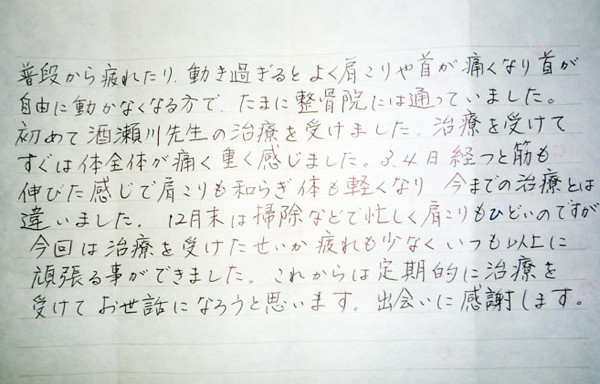 普段から疲れたり、動き過ぎるとよく肩こりや首が痛くなり首が
自由に動かなくなる方で、たまに整骨院には通っていました。
初めて酒瀬川先生の治療を受けました。治療を受けて
すぐは体全体が痛く重く感じました。3、4日経つと筋も
伸びた感じで肩こりも和らぎ体も軽くなり 今までの治療とは
違いました。12月末は掃除などで忙しく肩こりもひどいのですが
今回は治療を受けたせいか疲れも少なくいつも以上に
頑張る事ができました。これからは定期的に治療を
受けてお世話になろうと思います。出会いに感謝します。